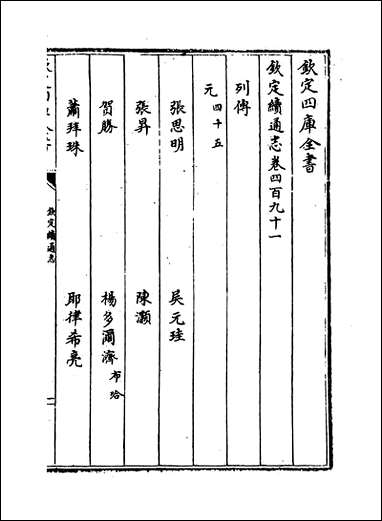 欽定四庫全書
欽定續通志卷四百九十一
列傳
元四十五
張思明 吳元珪
張昇 陳灝
賀勝 楊多爾濟 布哈
蕭拜珠 耶律希亮
欽定續通志